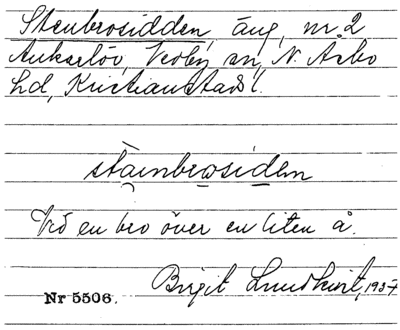 Stenbrosidden, äng, nr 2
Aukserlöv, Verby sn, N. Åsbo
hd, Kristianstads l.
stainbrosiden
Ved en bro över en liten å.
Birgit Lundkvist, 1937
Nr 5506.